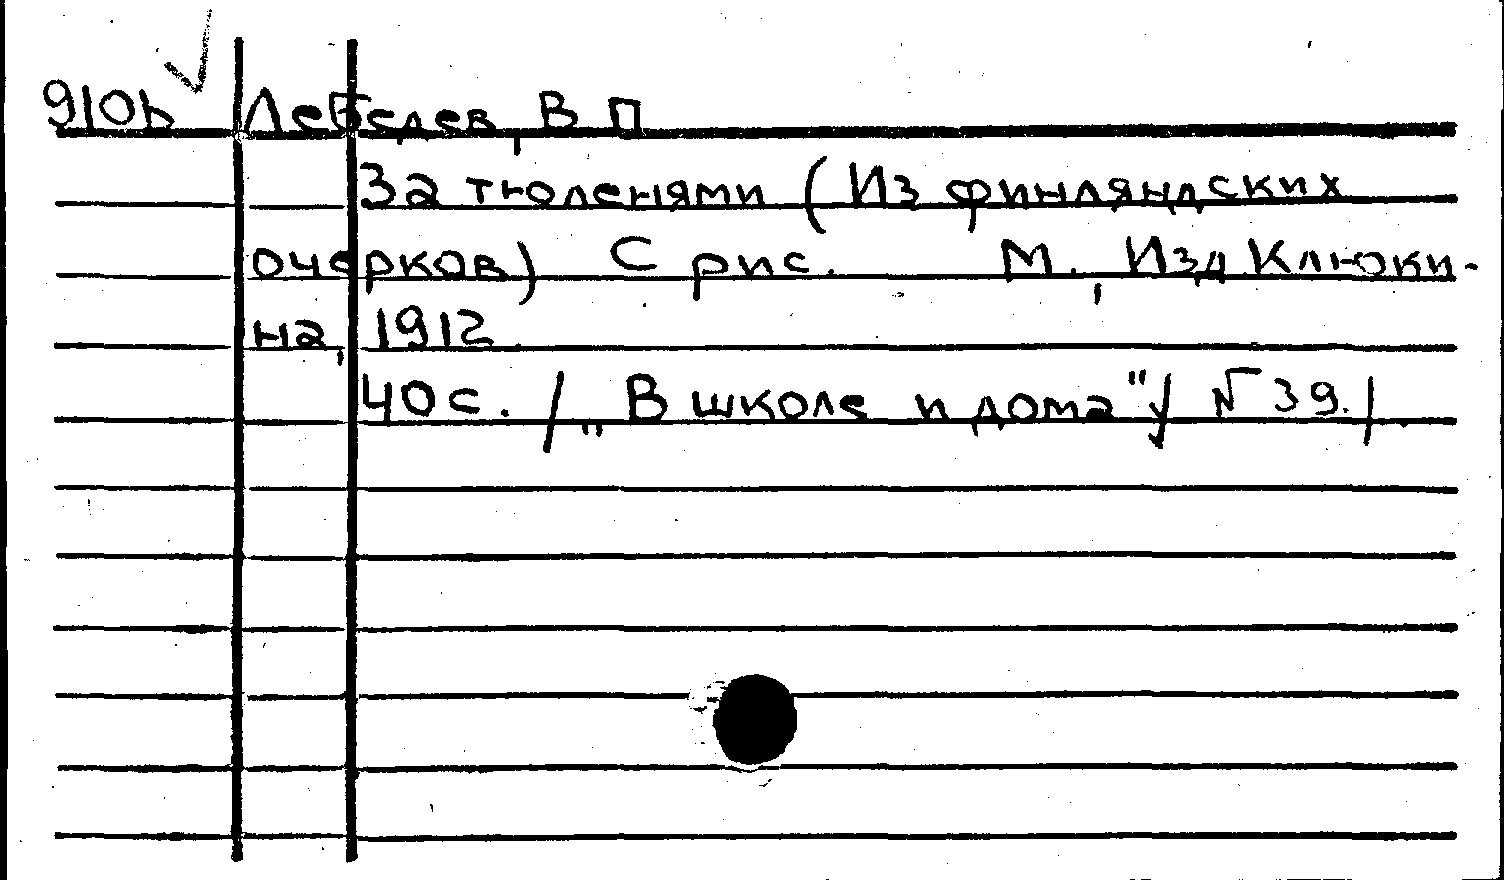 910b Лебедев, В П
За тюленями (Из финляндских
очерков) С рис. М., Изд Клюки-
на, 1912
40 с. /„В школе и дома"/ № 39./